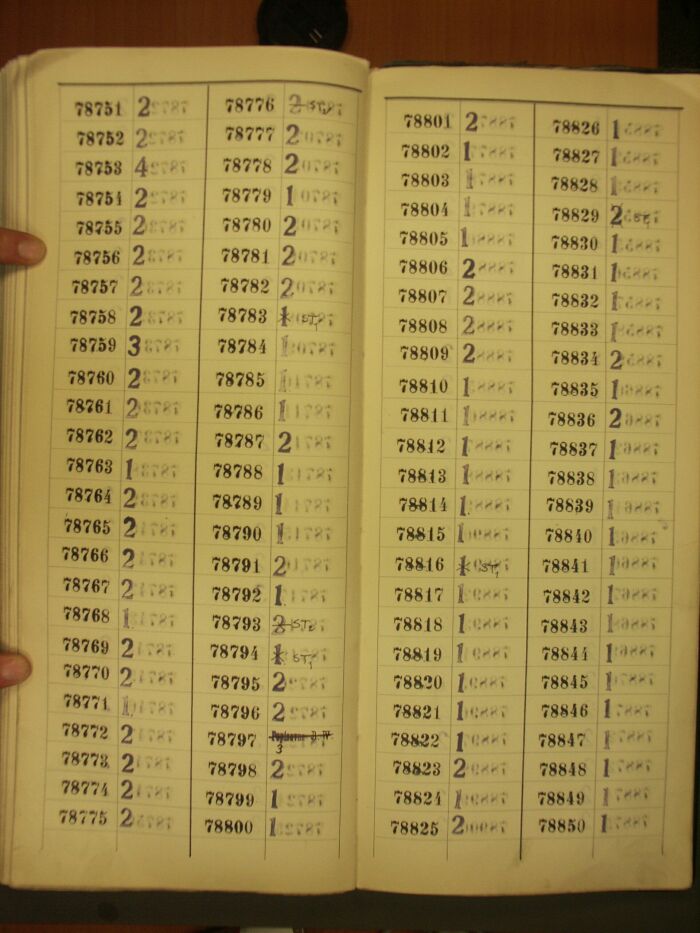 78751 2
78752 2
78753 4
78754 2
78755 2
78756 2
78757 2
78758 2
78759 3
78760 2
78761 2
78762 2
78763 1
78764 2
78765 2
78766 2
78767 2
78768 1
78769 2
78770 2
78771 1
78772 2
78773 2
78774 2
78775 2
78776 2 ST,
78777 2
78778 2
78779 1
78780 2
78781 2
78782 2
78783 1 ST,
78784 1
78785 1
78786 1
78787 2
78788 1
78789 1
78790 1
78791 2
78792 1
78793 2 ST,
78794 1 ST,
78795 2
78796 2
78797 3
78798 2
78799 1
78800 1
78801 2
78802 1
78803 1
78804 1
78805 1
78806 2
78807 2
78808 2
78809 2
78810 1
78811 1
78812 1
78813 1
78814 1
78815 1
78816 1 ST,
78817 1
78818 1
78819 1
78820 1
78821 1
78822 1
78823 2
78824 1
78825 2
78826 1
78827 1
78828 1
78829 2 ST,
78830 1
78831 1
78832 1
78833 1
78834 2
78835 1
78836 2
78837 1
78838 1
78839 1
78840 1
78841 1
78842 1
78843 1
78844 1
78845 1
78846 1
78847 1
78848 1
78849 1
78850 1